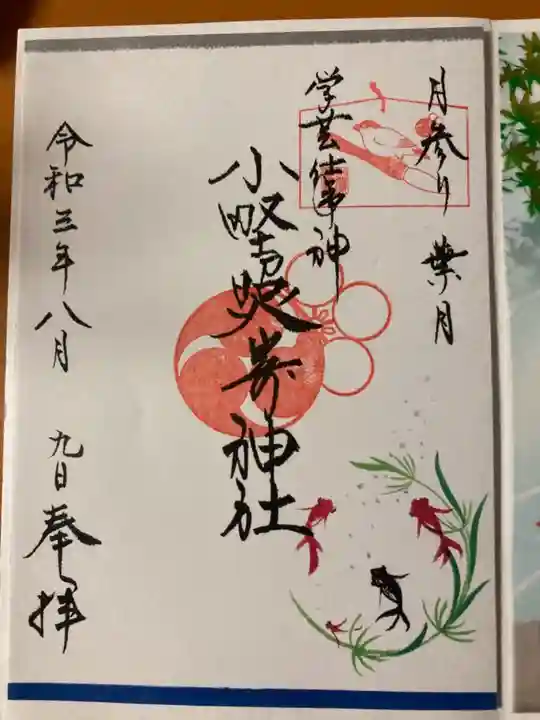 月参り 葉月
学芸仕事神
小野照崎神社
令和三年八月 九日奉拝